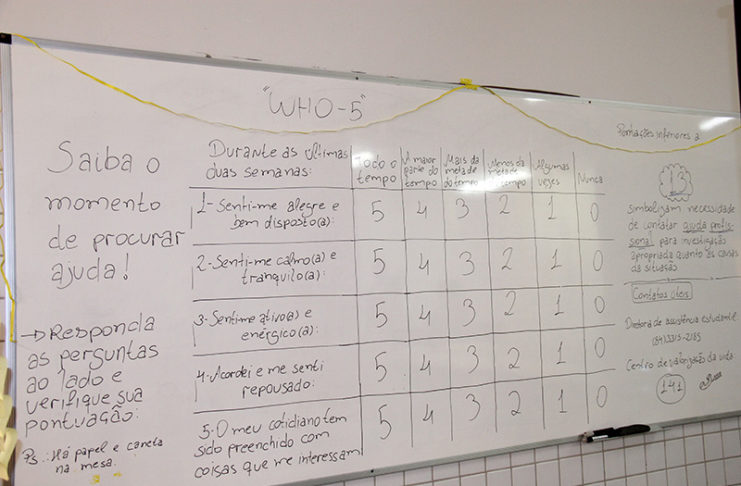 "WHO-5"
Saiba o
momento
de procurar
ajuda!
→ Responda
as perguntas
ao lado e
verifique sua
pontuação:
Ps.: Há papel e caneta
na mesa.
Durante as últimas
duas semanas:
Todo o
tempo
A maior
parte do
tempo
Mais da
metade
do tempo
Menos da
metade
tempo
Algumas
vezes
Nunca
1- Senti-me alegre e
bem disposto(a):
5 4 3 2 1 0
2- Senti-me calmo(a) e
tranquilo(a):
5 4 3 2 1 0
3- Senti-me ativo(a) e
enérgico(a):
5 4 3 2 1 0
4- Acordei e me senti
repousado:
5 4 3 2 1 0
5- O meu cotidiano tem
sido preenchido com
coisas que me interessam
5 4 3 2 1 0
Pontuações inferiores a
13
simbolizam necessidade
de contatar ajuda profis-
sional para investigação
apropriada quanto às causas
da situação.
Contatos úteis
Diretoria de assistência estudantil
(84)3315-2185
Centro de valorização da vida
141